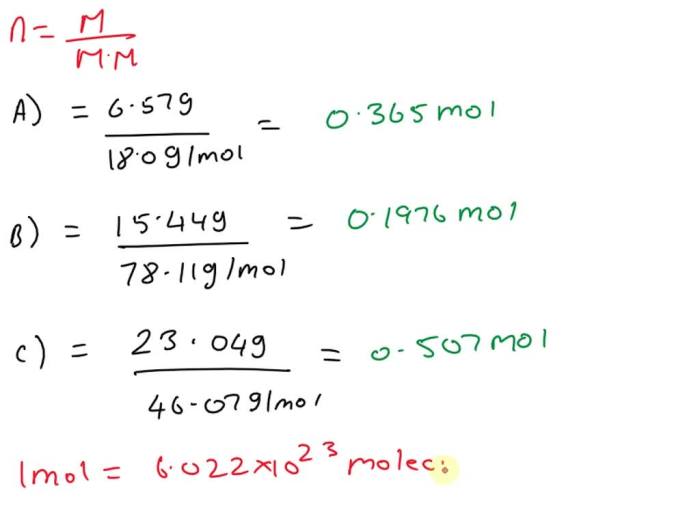 n = M / M.M
A) = 6.57g / 18.0g/mol = 0.365 mol
B) = 15.44g / 78.11g/mol = 0.1976 mol
C) = 23.04g / 46.07g/mol = 0.507 mol
1mol = 6.022×10²³ molec